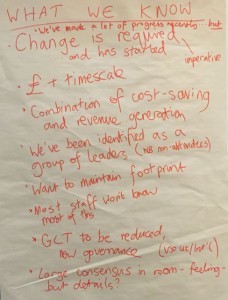 WHAT WE KNOW
• We've made a lot of progress recently - but
• Change is required
and has started
imperative
• £ + timescale
• Combination of cost-saving
and revenue generation
• We've been identified as a
group of leaders (NB non-attendees)
• Want to maintain footprint
• Most staff won't know
most of this
• GLT to be reduced,
new governance
• Large consensus in room - feeling -
but details?